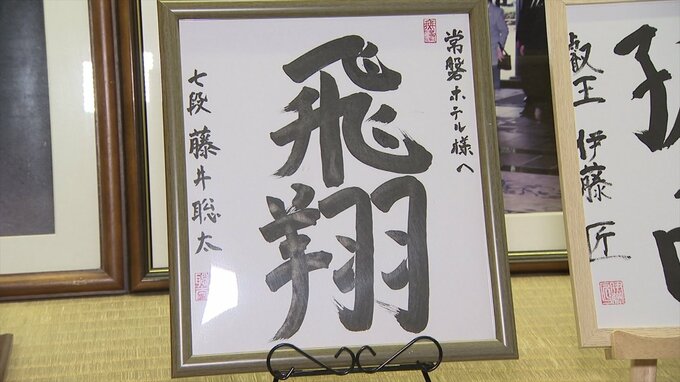 常磐ホテル様へ
飛翔
七段 藤井聡太
叡王 伊藤匠